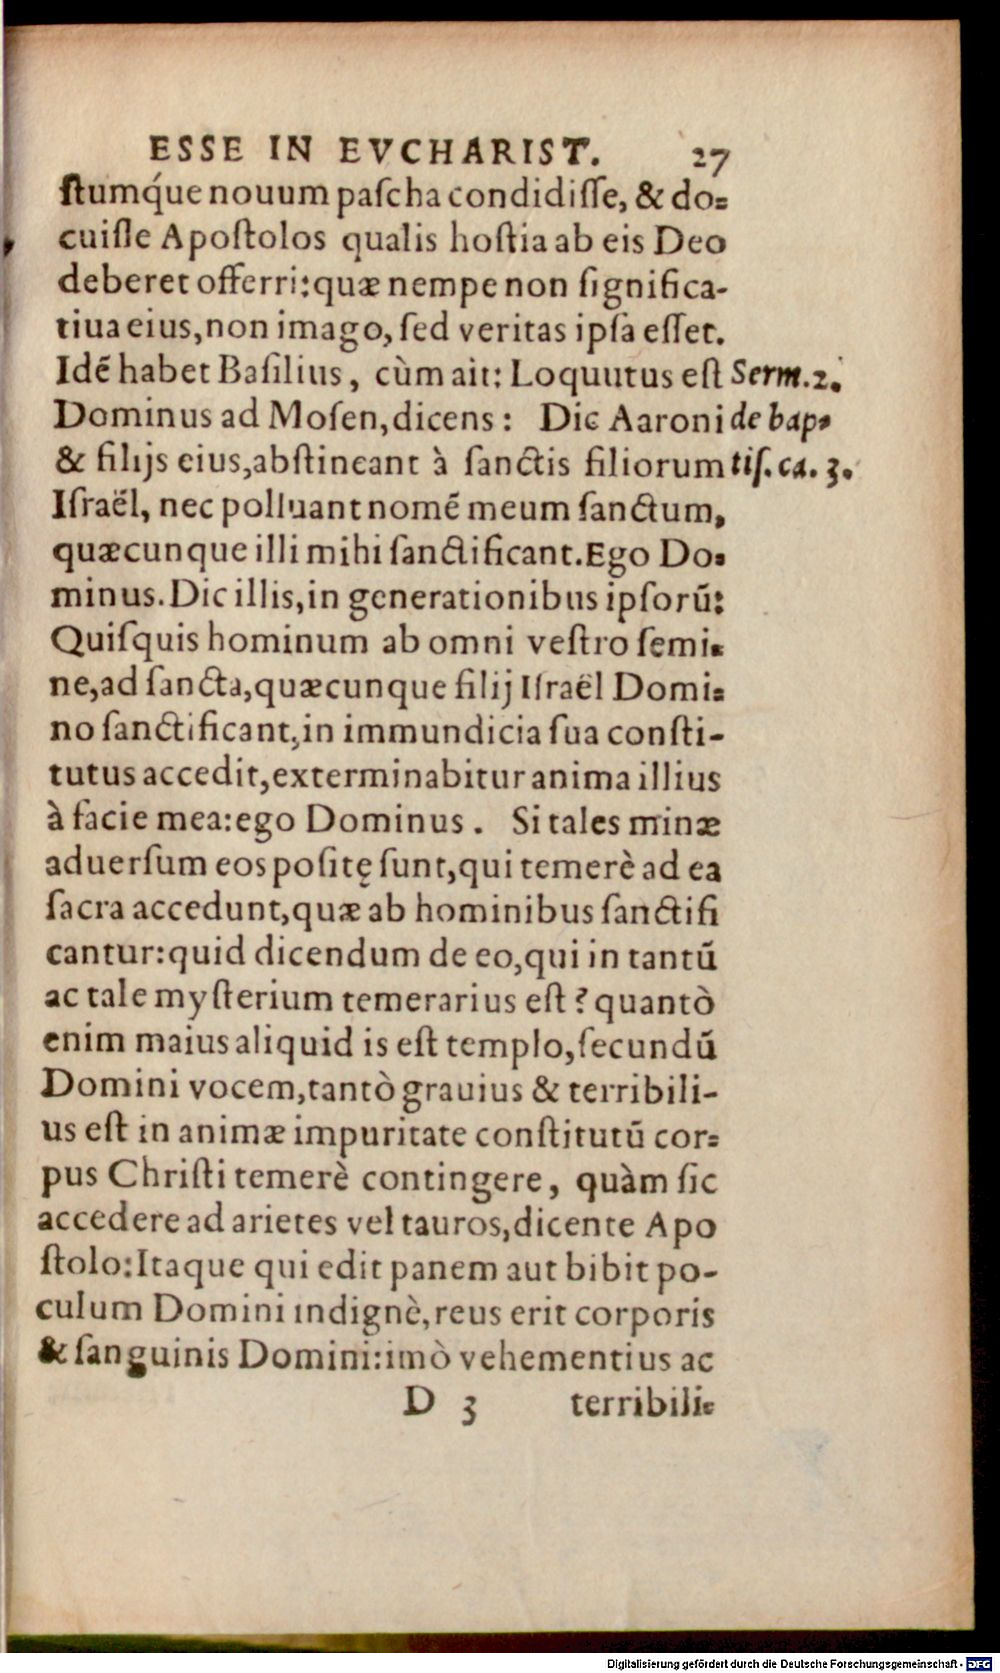 ESSE IN EVCHARIST. 27
ſtumq́ue nouum paſcha condidiſſe, & do=
cuiſſe Apoſtolos qualis hoſtia ab eis Deo
deberet offerri: quæ nempe non ſignifica-
tiua eius, non imago, ſed veritas ipſa eſſet.
Idē habet Baſilius, cùm ait: Loquutus eſt Serm. 2.
Dominus ad Moſen, dicens: Dic Aaroni de bap=
& filijs eius, abſtineant à ſanctis filiorum tiſ. ca. 3.
Iſraël, nec polluant nomē meum ſanctum,
quæcunque illi mihi ſanctificant. Ego Do=
minus. Dic illis, in generationibus ipſorū:
Quiſquis hominum ab omni veſtro ſemi=
ne, ad ſancta, quæcunque filij Iſraël Domi=
no ſanctificant, in immundicia ſua conſti-
tutus accedit, exterminabitur anima illius
à facie mea: ego Dominus. Si tales minæ
aduerſum eos poſitę ſunt, qui temerè ad ea
ſacra accedunt, quæ ab hominibus ſanctifi
cantur: quid dicendum de eo, qui in tantū
ac tale myſterium temerarius eſt? quantò
enim maius aliquid is eſt templo, ſecundū
Domini vocem, tantò grauius & terribili-
us eſt in animæ impuritate conſtitutū cor=
pus Chriſti temerè contingere, quàm ſic
accedere ad arietes vel tauros, dicente Apo
ſtolo: Itaque qui edit panem aut bibit po-
culum Domini indignè, reus erit corporis
& ſanguinis Domini: imò vehementius ac
D 3 terribili=
Digitalisierung gefördert durch die Deutsche Forschungsgemeinschaft - DFG